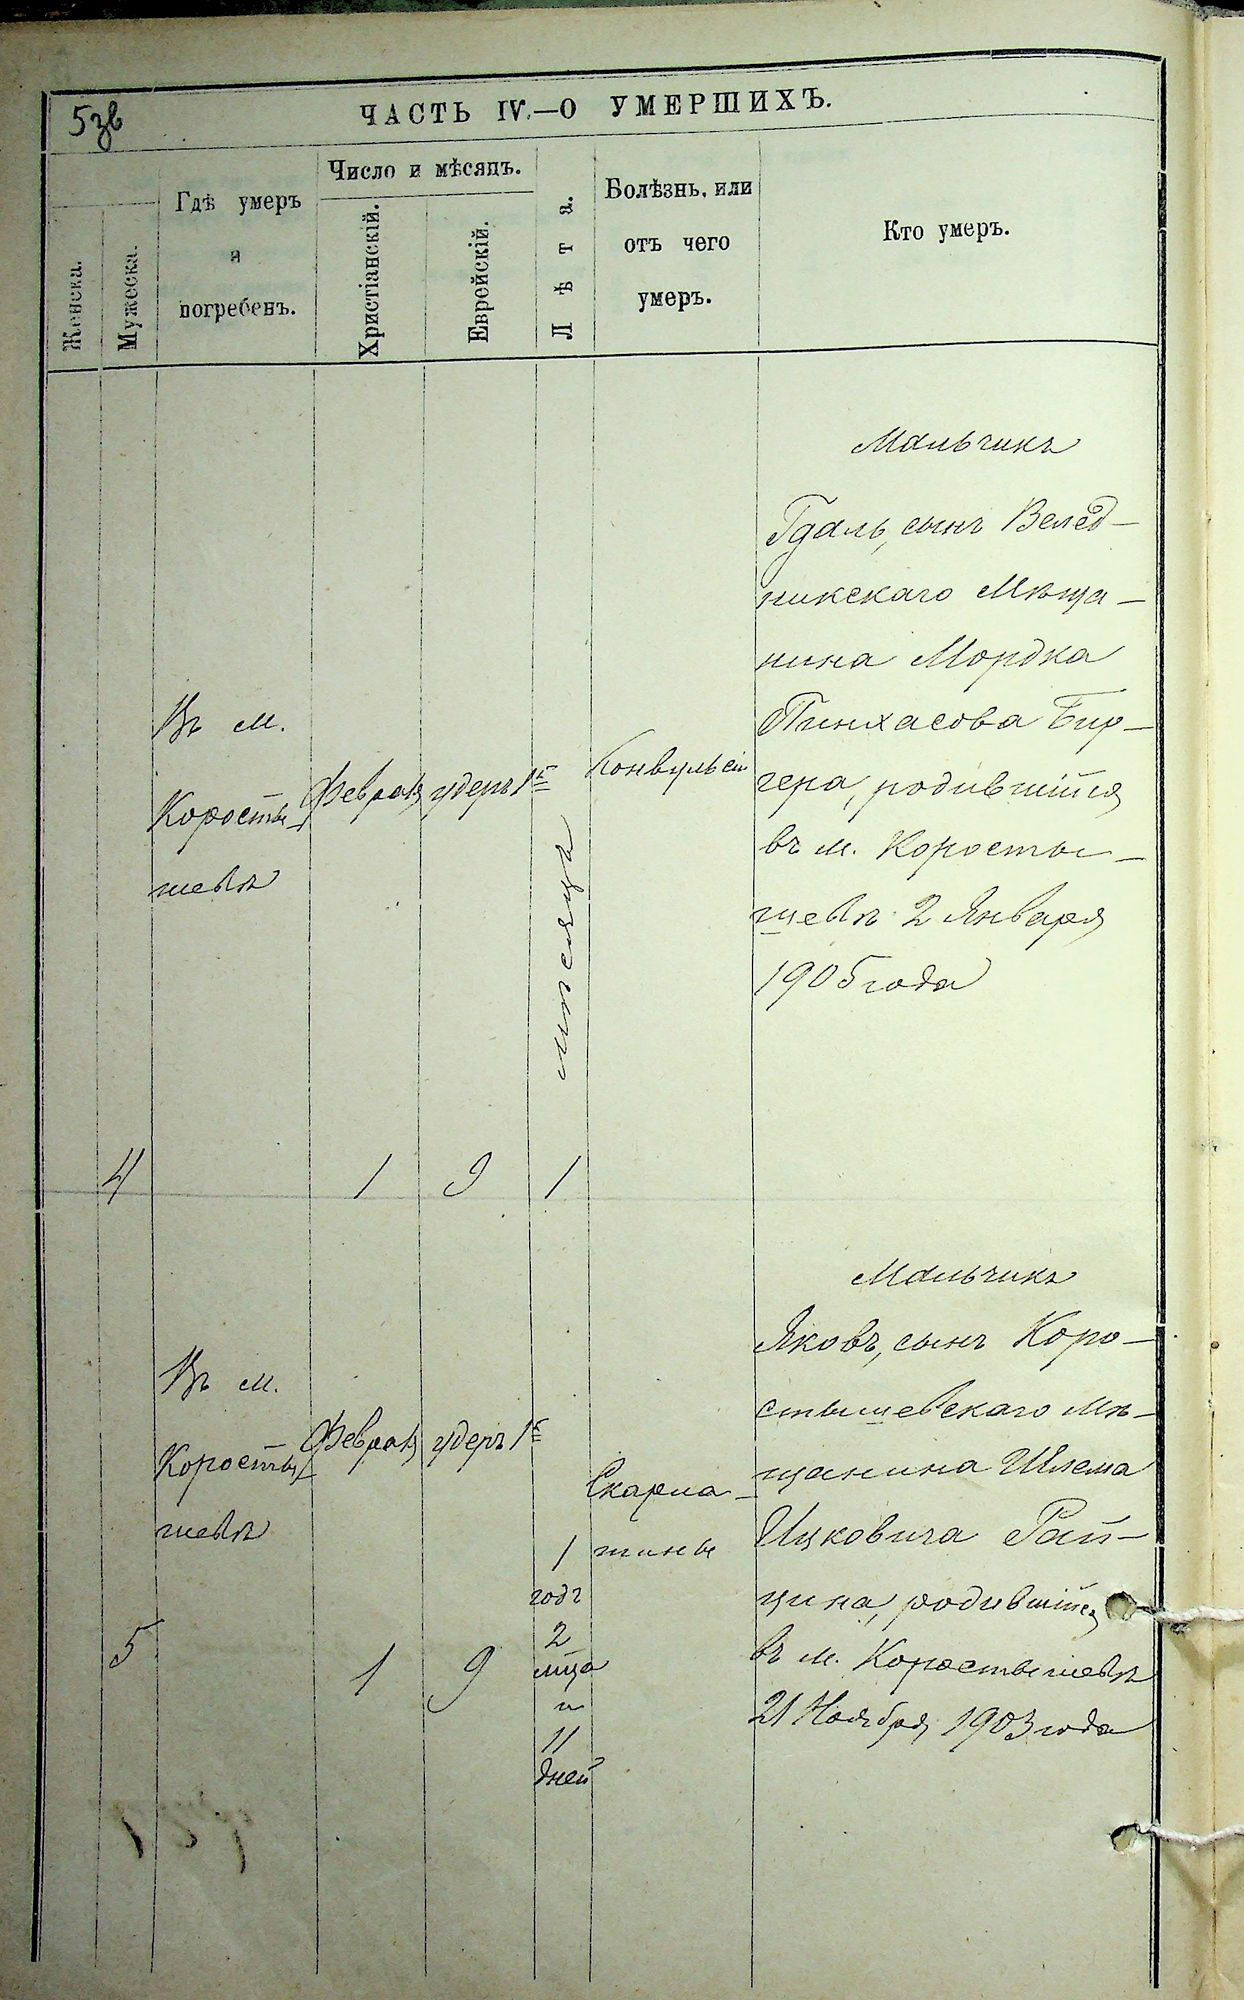 5зв
ЧАСТЬ IV.—О УМЕРШИХЪ.
Женска.
Мужеска.
Гдѣ умеръ
и
погребенъ.
Число и мѣсяцъ.
Христіанскій.
Еврейскій.
Лѣта.
Болѣзнь, или
отъ чего
умеръ.
Кто умеръ.
4
Въ м.
Коросты-
шевѣ
Февраля
1
Удеръ 1й
9
1
мѣсяца
Конвульсіи
Мальчикъ
Гдаль, сынъ Велед-
никскаго Мѣща-
нина Мордка
Пинхасова Бир-
гера, родившійся
въ м. Коросты-
шевѣ 2 Января
1905 года
5
Въ м.
Коросты-
шевѣ
Февраля
1
Удеръ 1й
9
1
годъ
2
мца
и
11
дней
Скарла-
тины
Мальчикъ
Яковъ, сынъ Коро-
стышевскаго мѣ-
щанина Шлема
Ицковича Рай-
цина, родившійся
въ м. Коростышевѣ
21 Ноября 1903 года